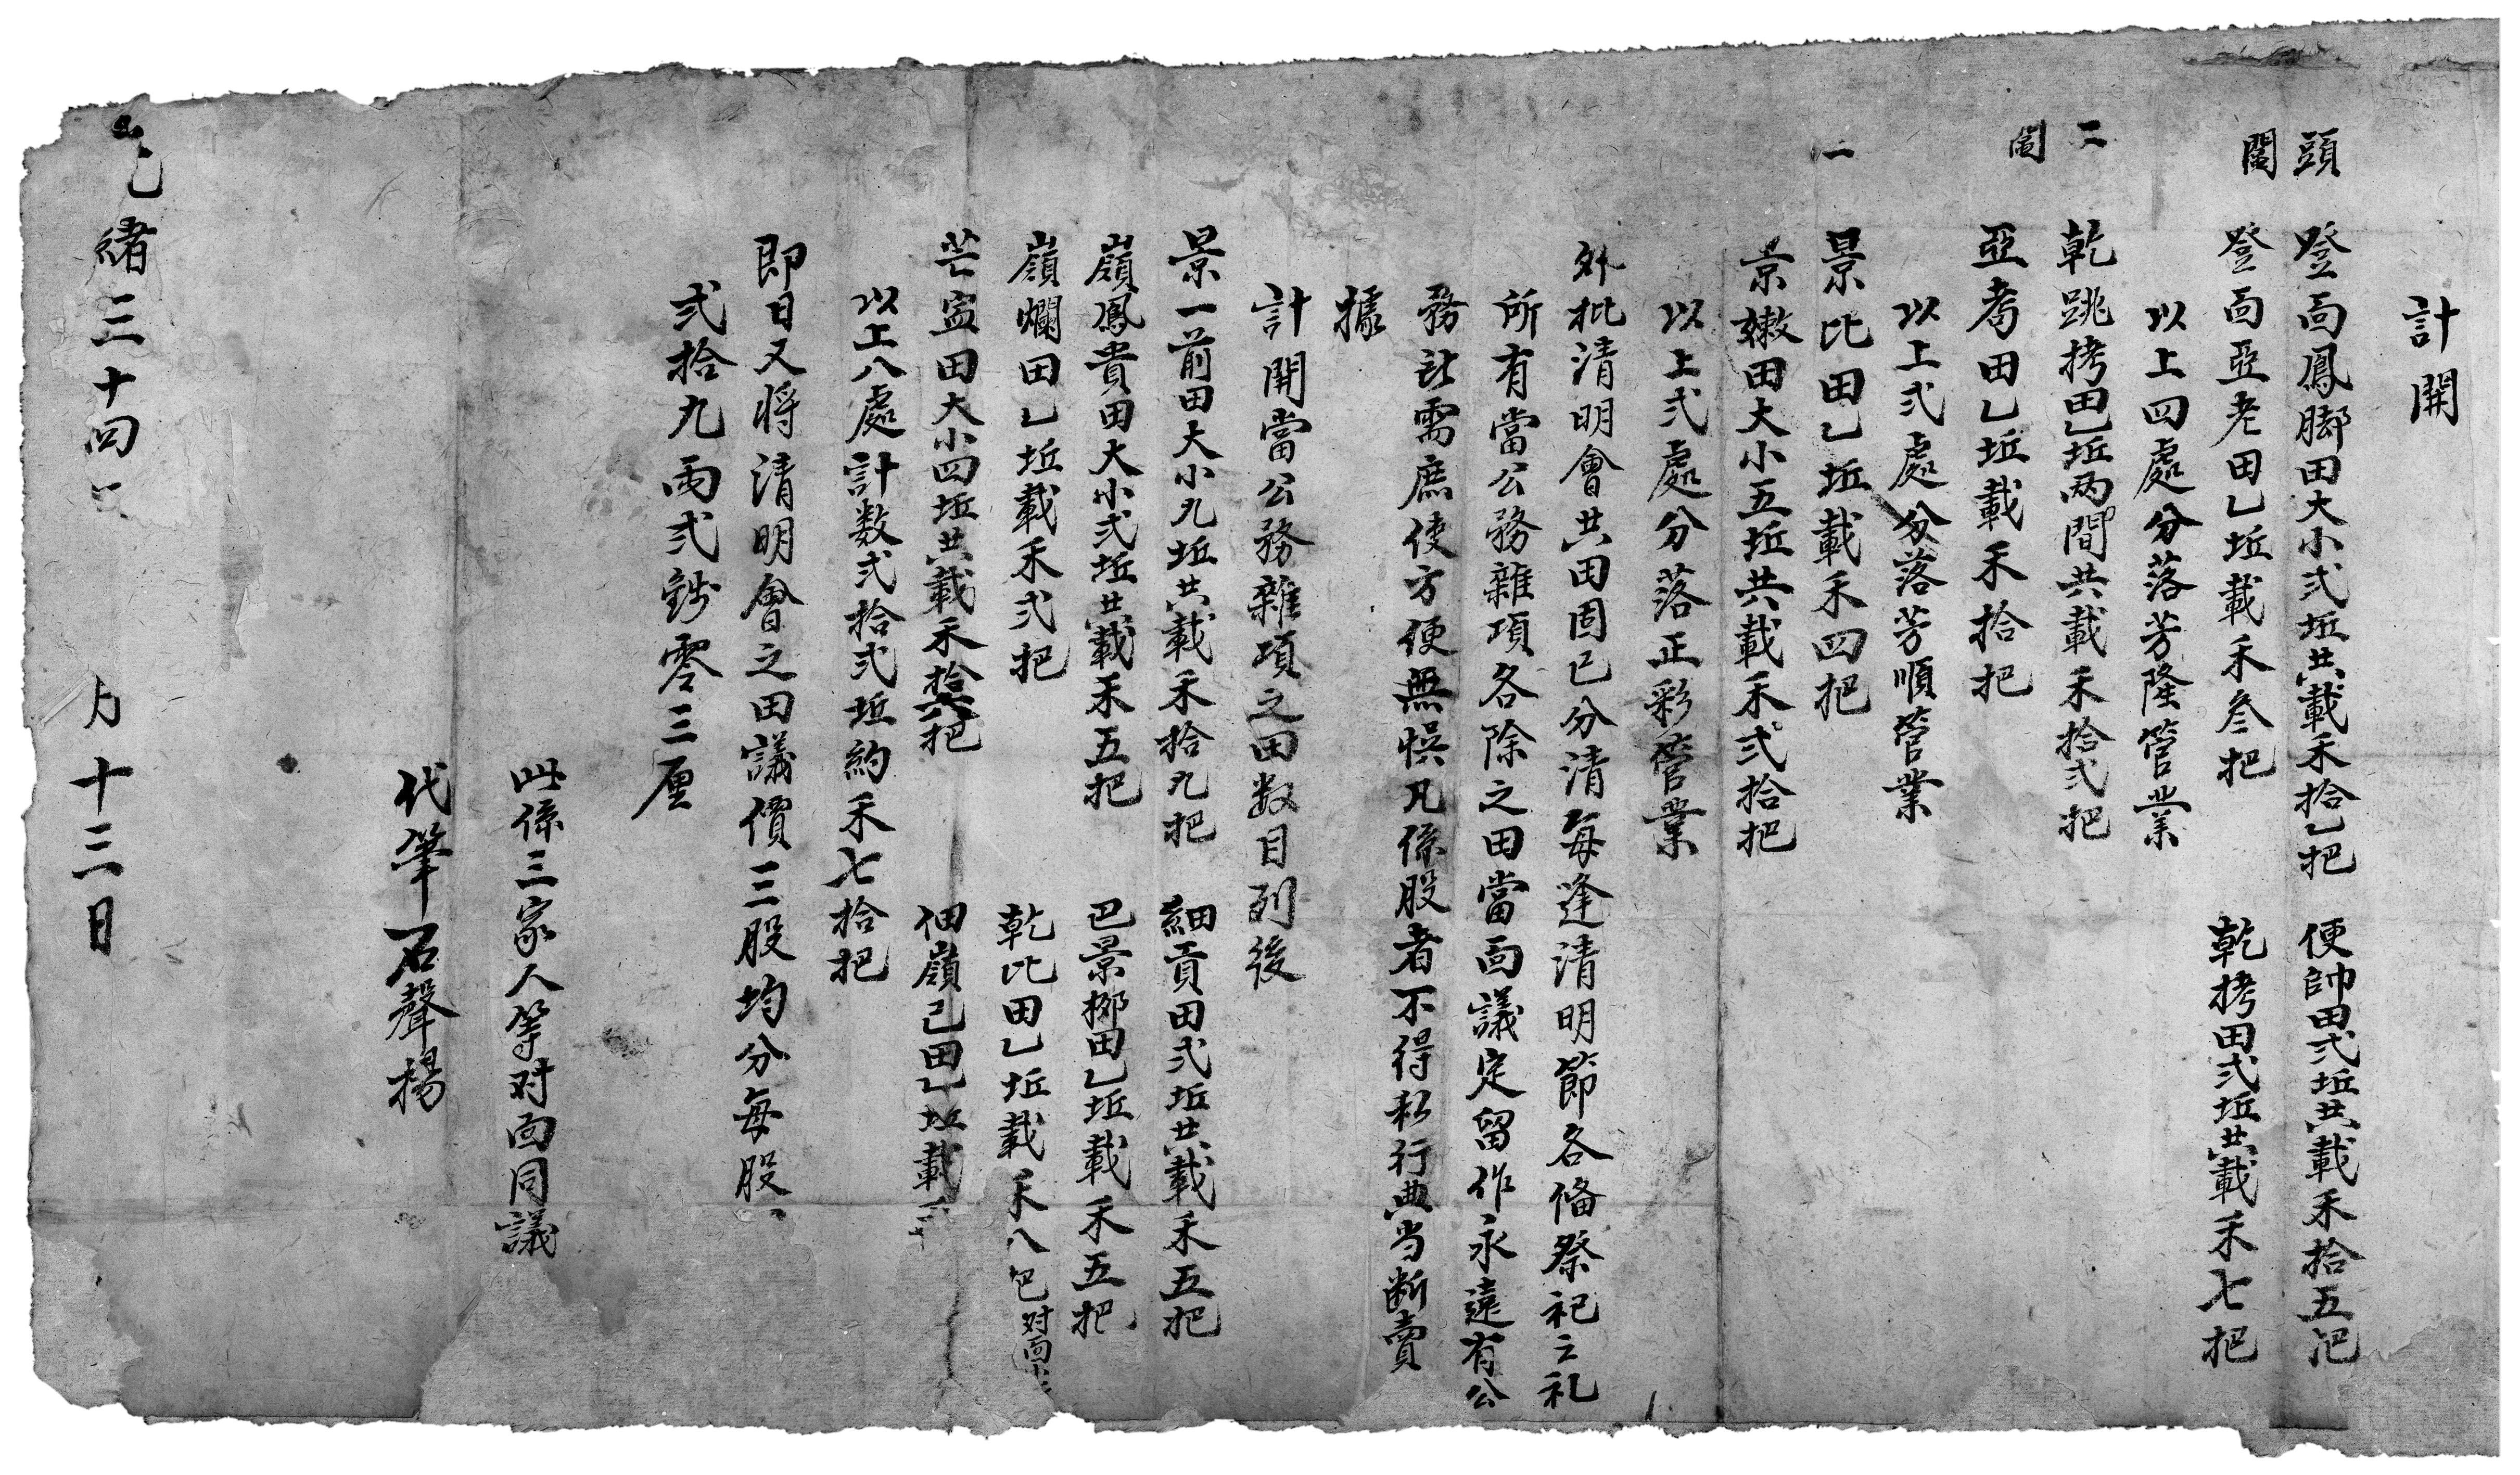 計開
頭
閫
登面鳳脚田大小弍坵共載禾拾乙把 便帥田弍坵共載禾拾五把
登面亞老田乙坵載禾叁把 乾拷田弍坵共載禾七把
以上四處分落芳隆管業
二
閫
乾跳拷田乙坵兩間共載禾拾弍把
亞考田乙坵載禾拾把
以上弍處分落芳順管業
一
景比田乙坵載禾四把
景嫩田大小五坵共載禾弍拾把
以上弍處分落正彩管業
外批清明會共田固已分清每逢清明節各俻祭祀之礼
所有當公務雜項各除之田當面議定留作永遠有公
務計需庶使方便無悞凡係股者不得私行典当断賣
據
計開當公務雜項之田数目列後
景一前田大小九坵共載禾拾九把 細貢田弍坵共載禾五把
嶺鳳貴田大小弍坵共載禾五把 已景梛田乙坵載禾五把
嶺爛田乙坵載禾弍把 乾比田乙坵載禾八把 对面
芒盆田大小四坵共載禾拾六把 佃嶺己田乙坵載禾
以上八處計数弍拾弍坵約禾七拾把
即日又将清明會之田議價三股均分每股
弍拾九兩弍錢零三厘
此係三家人等对面同議
代筆石聲揚
光緒三十四 月十三日